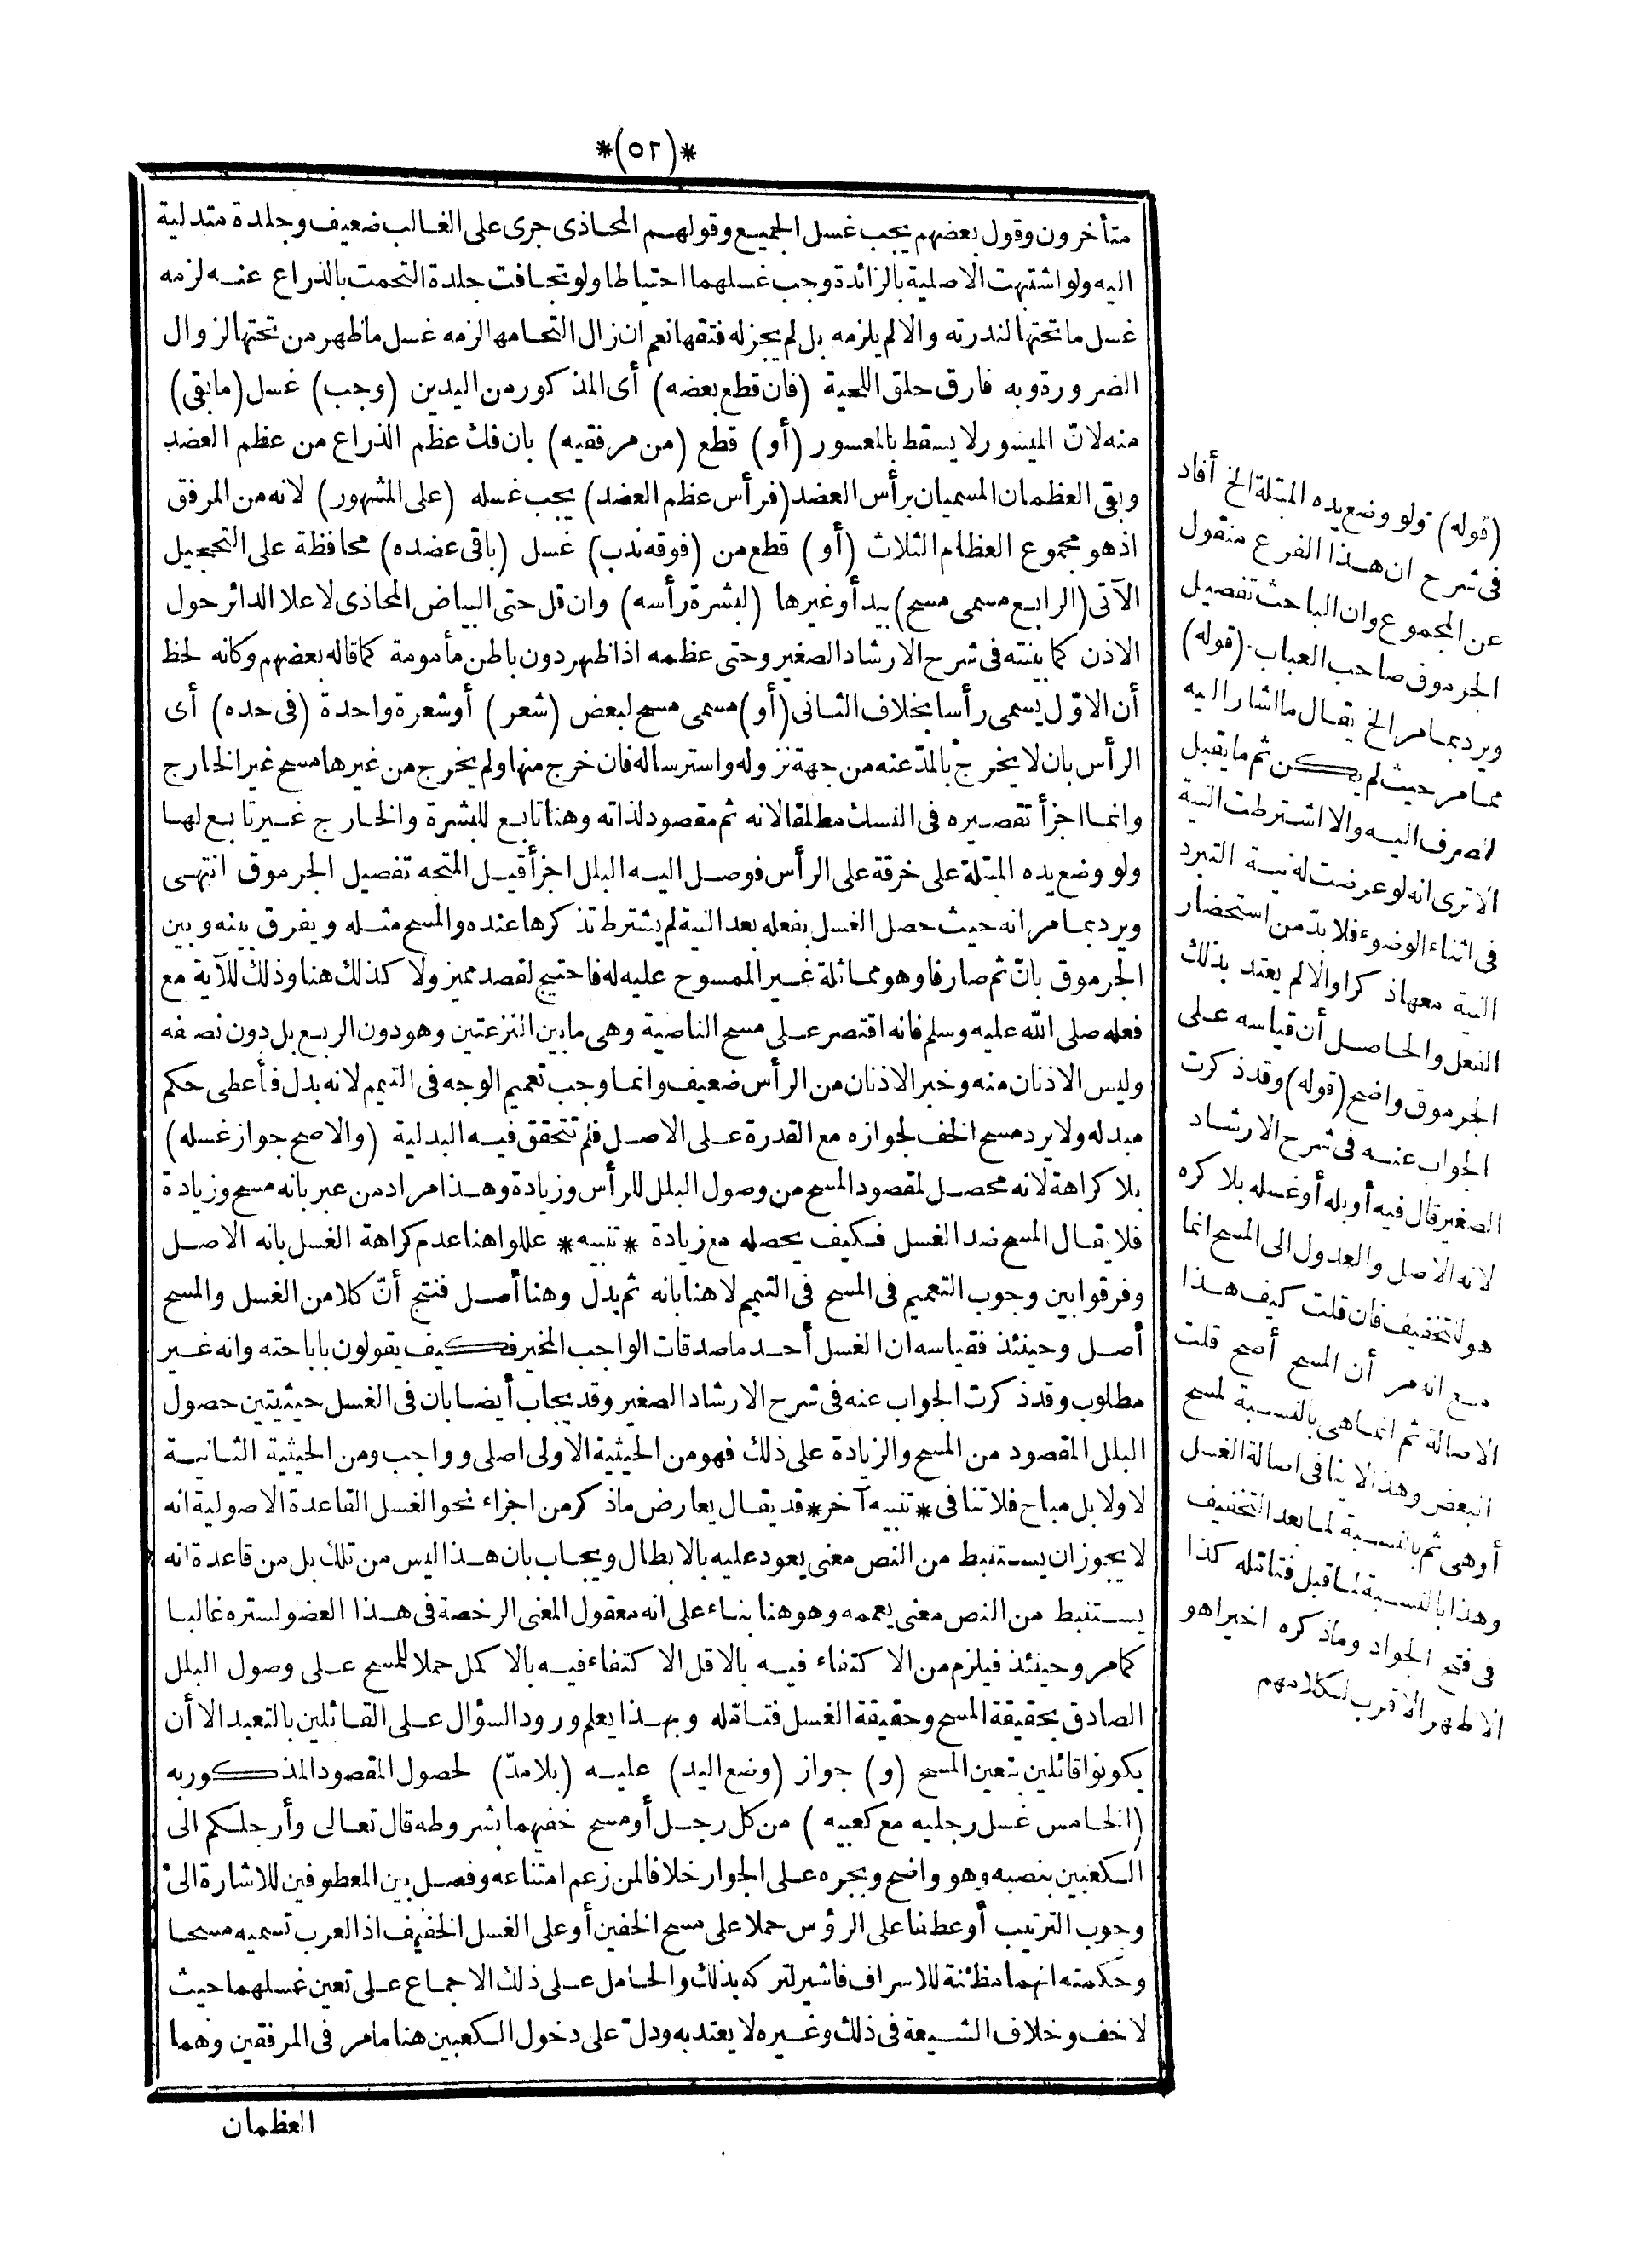 *(٥٢)*
متأخرون وقول بعضهم يجب غسل الجميع وقولهم المحاذى جرى على الغالب ضعيف وجلدة متدلية
اليه ولو اشتبهت الاصلية بالزائدة وجب غسلهما احتياطا ولو تجافت جلدة التحمت بالذراع عنه لزمه
غسل ما تحتها لندرته والا لم يلزمه بل لم يجز له فتقها نعم ان زال التحامها لزمه غسل ما ظهر من تحتها لزوال
الضرورة وبه فارق حلق اللحية (فان قطع بعضه) أى المذكور من اليدين (وجب) غسل (ما بقى)
منه لانّ الميسور لا يسقط بالمعسور (أو) قطع (من مرفقيه) بان فك عظم الذراع من عظم العضد
وبقى العظمان المسميان برأس العضد (فرأس عظم العضد) يجب غسله (على المشهور) لانه من المرفق
اذ هو مجموع العظام الثلاث (أو) قطع من (فوقه ندب) غسل (باقى عضده) محافظة على التحجيل
الآتى (الرابع مسمى مسح) بيد أو غيرها (لبشرة رأسه) وان قل حتى البياض المحاذى لاعلا الدائر حول
الاذن كما بينته فى شرح الارشاد الصغير وحتى عظمه اذا ظهر دون باطن مأمومة كما قاله بعضهم وكانه لحظ
أن الاوّل يسمى رأسا بخلاف الثانى (أو) مسمى مسح لبعض (شعر) أو شعرة واحدة (فى حده) أى
الرأس بان لا يخرج بالمدّ عنه من جهة نزوله واسترساله فان خرج منها ولم يخرج من غيرها مسح غير الخارج
وانما اجزأ تقصيره فى النسك مطلقا لانه ثم مقصود لذاته وهنا تابع للبشرة والخارج غير تابع لها
ولو وضع يده المبتلة على خرقة على الرأس فوصل اليه البلل اجزأ قيل المتجه تفصيل الجرموق انتهى
ويرد بما مر انه حيث حصل الغسل بفعله بعد النية لم يشترط تذكرها عنده والمسح مثله ويفرق بينه وبين
الجرموق بانّ ثم صارفا وهو مماثلة غير الممسوح عليه له فاحتيج لقصد مميز ولا كذلك هنا وذلك للآية مع
فعله صلى الله عليه وسلم فانه اقتصر على مسح الناصية وهى ما بين النزعتين وهو دون الربع بل دون نصفه
وليس الاذنان منه وخبر الاذنان من الرأس ضعيف وانما وجب تعميم الوجه فى التيمم لانه بدل فأعطى حكم
مبدله ولا يرد مسح الخف لجوازه مع القدرة على الاصل فلم تتحقق فيه البدلية (والاصح جواز غسله)
بلا كراهة لانه محصل لمقصود المسح من وصول البلل للرأس وزيادة وهذا مراد من عبر بانه مسح وزيادة
فلا يقال المسح ضد الغسل فكيف يحصله مع زيادة *تنبيه* عللوا هنا عدم كراهة الغسل بانه الاصل
وفرقوا بين وجوب التعميم فى المسح فى التيمم لا هنا بانه ثم بدل وهنا أصل فنتج أنّ كلا من الغسل والمسح
أصل وحينئذ فقياسه ان الغسل أحد ما صدقات الواجب المخير فكيف يقولون باباحته وانه غير
مطلوب وقد ذكرت الجواب عنه فى شرح الارشاد الصغير وقد يجاب أيضا بان فى الغسل حيثيتين حصول
البلل المقصود من المسح والزيادة على ذلك فهو من الحيثية الاولى اصلى وواجب ومن الحيثية الثانية
لا ولا بل مباح فلا تنافى *تنبيه آخر* قد يقال يعارض ما ذكر من اجزاء نحو الغسل القاعدة الاصولية انه
لا يجوز ان يستنبط من النص معنى يعود عليه بالابطال ويجاب بان هذا ليس من تلك بل من قاعدة انه
يستنبط من النص معنى يعممه وهو هنا بناء على انه معقول المعنى الرخصة فى هذا العضو لستره غالبا
كما مر وحينئذ فيلزم من الاكتفاء فيه بالاقل الاكتفاء فيه بالاكمل حملا للمسح على وصول البلل
الصادق بحقيقة المسح وحقيقة الغسل فتامّله وبهذا يعلم ورود السؤال على القائلين بالتعبد الا أن
يكونوا قائلين بتعين المسح (و) جواز (وضع اليد) عليه (بلا مدّ) لحصول المقصود المذكور به
(الخامس غسل رجليه مع كعبيه) من كل رجل أو مسح خفيهما بشروطه قال تعالى وأرجلكم الى
الكعبين بنصبه وهو واضح وبجره على الجوار خلافا لمن زعم امتناعه وفصل بين المعطوفين للاشارة الى
وجوب الترتيب أو عطفا على الرؤس حملا على مسح الخفين أو على الغسل الخفيف اذ العرب تسميه مسحا
وحكمته انهما مظنة للاسراف فاشير لتركه بذلك والحامل على ذلك الاجماع على تعين غسلهما حيث
لا خف وخلاف الشيعة فى ذلك وغيره لا يعتد به ودلّ على دخول الكعبين هنا ما مر فى المرفقين وهما
العظمان
(قوله) ولو وضع يده المبتلة الخ أفاد
فى شرح ان هذا الفرع منقول
عن المجموع وان الباحث تفصيل
الجرموق صاحب العباب. (قوله)
ويرد بما مر الخ يقال ما اشار اليه
مما مر حيث لم يكن ثم ما يقبل
الصرف اليه والا اشترطت النية
الا ترى انه لو عرضت له نية التبرد
فى اثناء الوضوء فلا بدّ من استحضار
النية معها ذكرا والا لم يعتد بذلك
الفعل والحاصل أن قياسه على
الجرموق واضح (قوله) وقد ذكرت
الجواب عنه فى شرح الارشاد
الصغير قال فيه أو بله أو غسله بلا كره
لانه الاصل والعدول الى المسح انما
هو لتخفيف فان قلت كيف هذا
مع انه مر أن المسح أصح قلت
الاصالة ثم انما هى بالنسبة لمسح
البعض وهذا لا ينافى اصالة الغسل
أو هى ثم بالنسبة لما بعد التخفيف
وهذا بالنسبة لما قبل فتامّله كذا
فى فتح الجواد وما ذكره اخيرا هو
الاظهر الاقرب لكلامهم